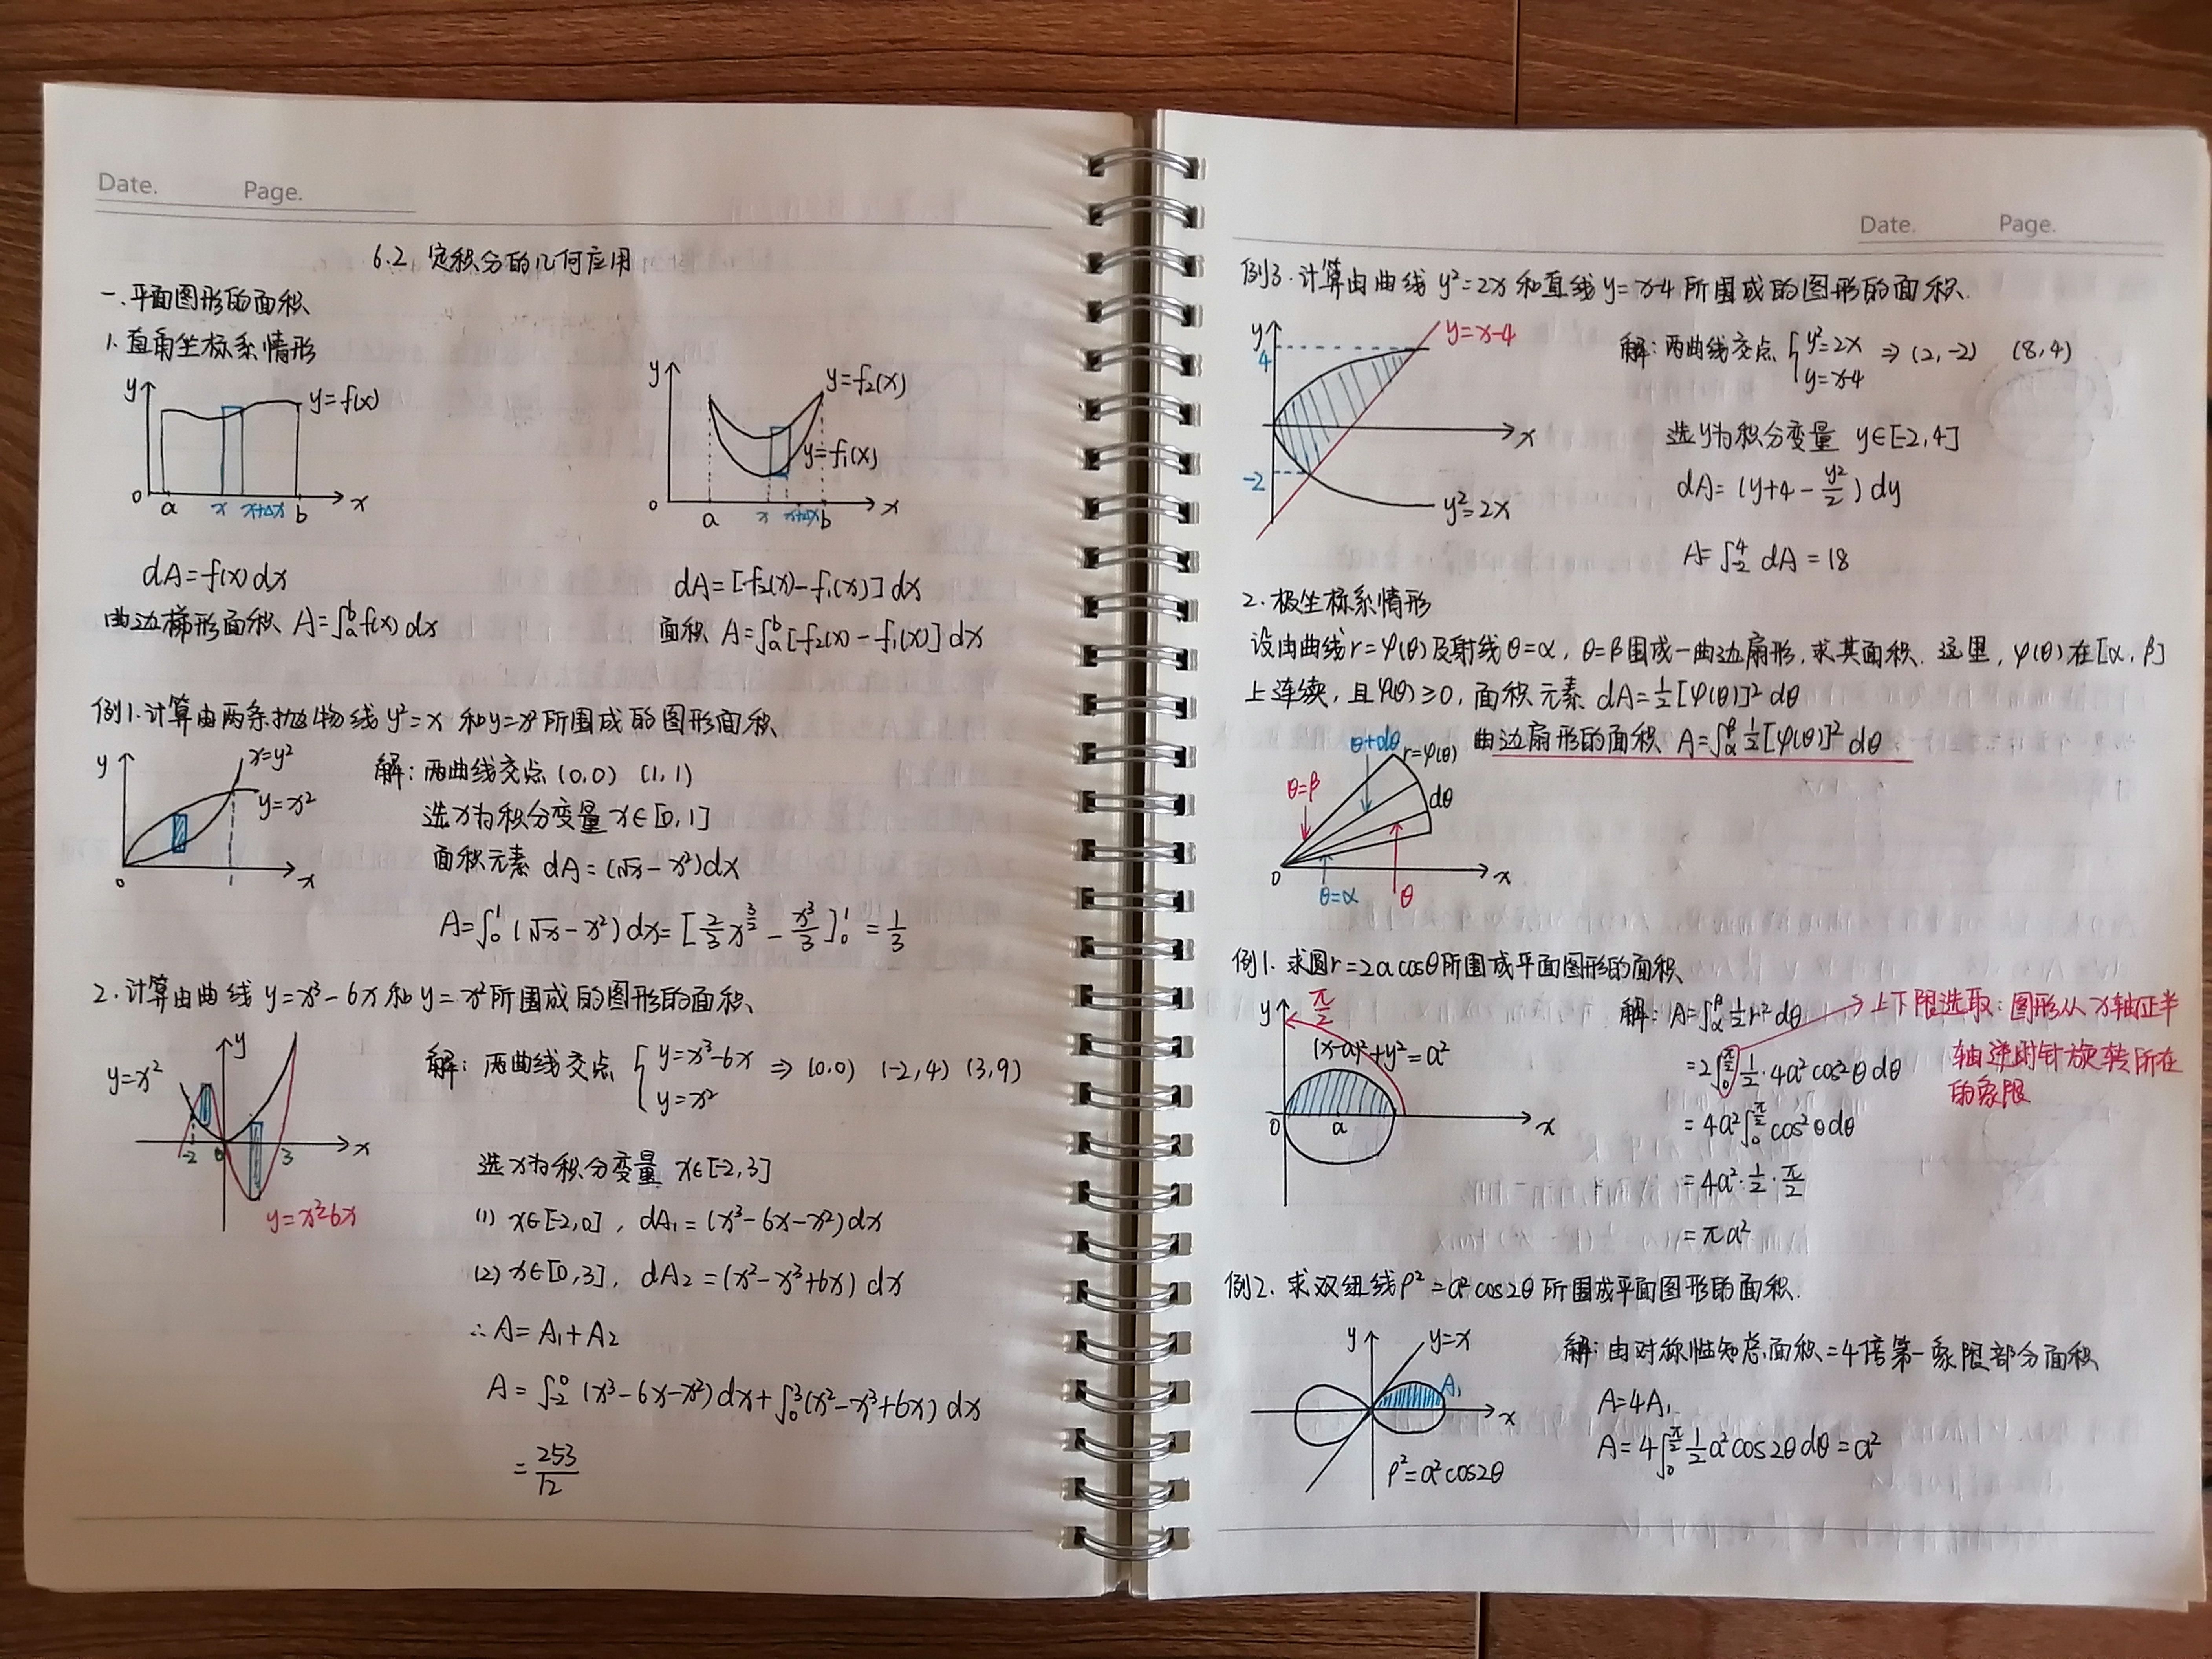 Date. Page.
6.2 定积分的几何应用
一.平面图形的面积
1. 直角坐标系情形
y y=f(x)
0 a x x+Δx b x
y y=f₂(x)
y=f₁(x)
0 a x x+Δx b x
dA=f(x)dx
曲边梯形面积 A=∫ₐᵇf(x)dx
dA=[f₂(x)-f₁(x)]dx
面积 A=∫ₐᵇ[f₂(x)-f₁(x)]dx
例1.计算由两条抛物线y²=x 和y=x²所围成的图形面积.
y x=y²
y=x²
0 1 x
解: 两曲线交点 (0,0) (1,1)
选x为积分变量 x∈[0,1]
面积元素 dA=(√x-x²)dx
A=∫₀¹(√x-x²)dx=[2/3 x^(3/2) - x³/3]₀¹=1/3
2.计算由曲线 y=x³-6x和y=x²所围成的图形的面积.
y=x² y
-2 0 3 x
y=x²-6x
解: 两曲线交点 { y=x³-6x
y=x² ⇒ (0,0) (-2,4) (3,9)
选x为积分变量 x∈[-2,3]
(1) x∈[-2,0], dA₁=(x³-6x-x²)dx
(2) x∈[0,3], dA₂=(x²-x³+6x)dx
∴A=A₁+A₂
A=∫₋₂⁰(x³-6x-x²)dx+∫₀³(x²-x³+6x)dx
=253/12
Date. Page.
例3.计算由曲线y²=2x和直线y=x-4所围成的图形的面积.
y y=x-4
4
x
-2
y²=2x
解:两曲线交点 { y²=2x
y=x-4 ⇒ (2,-2) (8,4)
选y为积分变量 y∈[-2,4]
dA=(y+4-y²/2)dy
A=∫₋₂⁴ dA=18
2.极坐标系情形
设由曲线r=φ(θ)及射线θ=α, θ=β围成一曲边扇形,求其面积.这里, φ(θ)在[α,β]
上连续, 且φ(θ)≥0, 面积元素 dA=1/2[φ(θ)]²dθ
曲边扇形的面积 A=∫_α^β 1/2[φ(θ)]²dθ
θ+dθ r=φ(θ)
θ=β dθ
0 x
θ=α θ
例1.求圆r=2acosθ所围成平面图形的面积
y π/2
(x-a)²+y²=a²
0 a x
解: A=∫_α^β 1/2 r²dθ
=2∫₀^(π/2) 1/2·4a²cos²θdθ
=4a²∫₀^(π/2)cos²θdθ
=4a²·1/2·π/2
=πa²
上下限选取:图形从x轴正半
轴逆时针旋转所在
的象限
例2.求双纽线ρ²=a²cos2θ所围成平面图形的面积.
y y=x
A₁
x
ρ²=a²cos2θ
解:由对称性知总面积=4倍第一象限部分面积
A=4A₁
A=4∫₀^(π/2) 1/2 a²cos2θdθ=a²